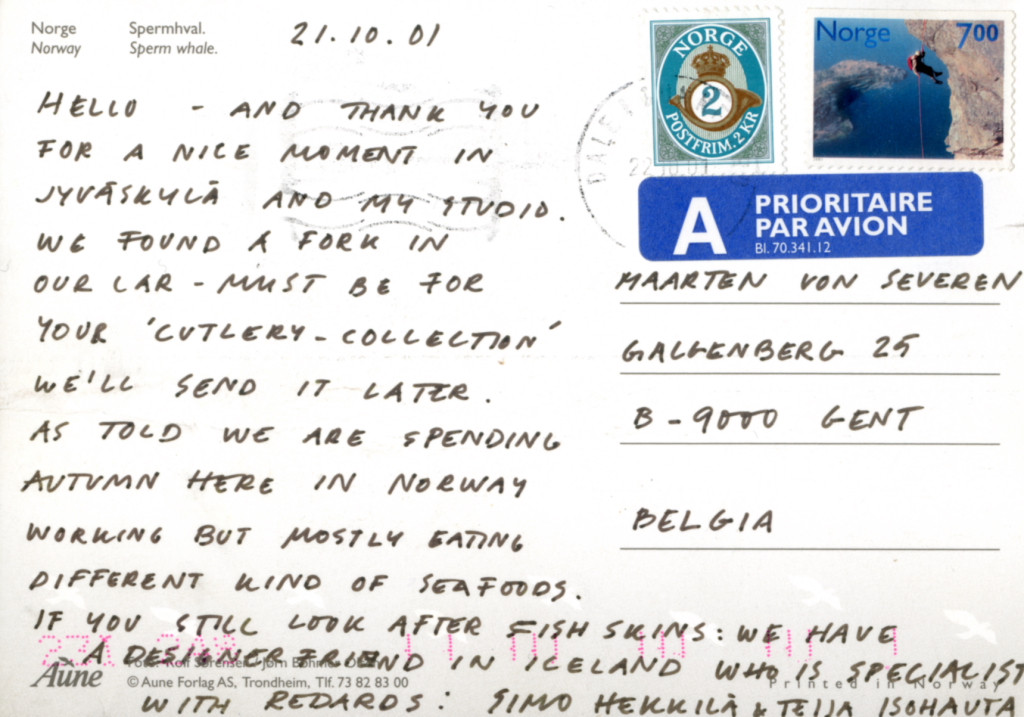 Norge Spermhval.
Norway Sperm whale.
21.10.01
HELLO - AND THANK YOU
FOR A NICE MOMENT IN
JYVÄSKYLÄ AND MY STUDIO.
WE FOUND A FORK IN
OUR CAR - MUST BE FOR
YOUR 'CUTLERY-COLLECTION'
WE'LL SEND IT LATER.
AS TOLD WE ARE SPENDING
AUTUMN HERE IN NORWAY
WORKING BUT MOSTLY EATING
DIFFERENT KIND OF SEAFOODS.
IF YOU STILL LOOK AFTER FISH SKINS: WE HAVE
A DESIGNER FRIEND IN ICELAND WHO IS SPECIALIST
WITH REDARDS: SIMO HEKKILÄ & TEIJA ISOHAUTA
NORGE
2
POSTFRIM. 2 KR
Norge 7.00
A PRIORITAIRE
PAR AVION
Bl. 70.341.12
MAARTEN VON SEVEREN
GALGENBERG 25
B-9000 GENT
BELGIA
Aune
Foto: Rolf Sørensen / Jørn Bøhmer
© Aune Forlag AS, Trondheim, Tlf. 73 82 83 00
Printed in Norway